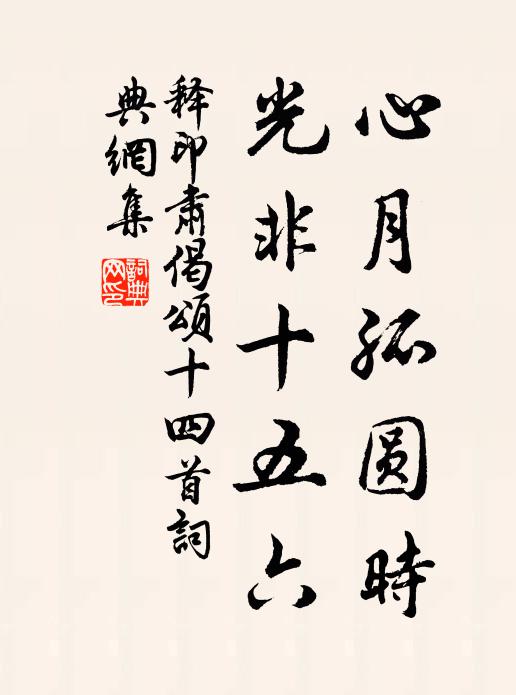 心月孤圆時
光非十五六
释印肃偈頌十四首詞
典網集
詞典網印